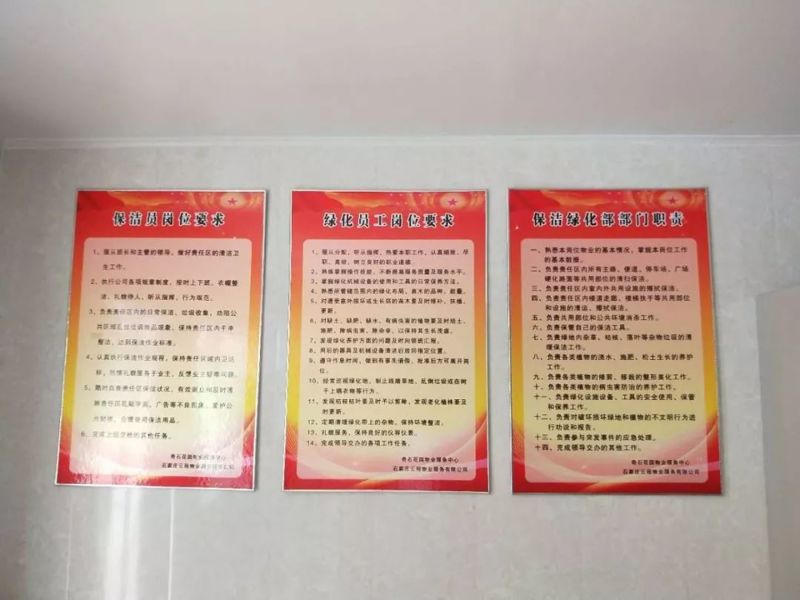 保洁员岗位要求
1、服从班长和主管的领导，做好责任区的清洁卫
生工作。
2、执行公司各项规章制度，按时上下班，衣帽整
洁、礼貌待人、听从指挥、行为规范。
3、负责责任区内的日常保洁、垃圾收集，劝阻公
整洁，达到保洁作业标准。
4、认真执行保洁作业规程，保持责任区域内卫达
标，热情礼貌服务于业主，反馈业主疑难问题
6、完成上级交给的其他任务。
奇石花园物业服务中心
绿化员工岗位要求
1、服从分配，听从指挥，热爱本职工作，认真细致、尽
职、真诚，树立良好的职业道德。
2、熟练掌握操作技能，不断提高服务质量及服务水平。
3、掌握绿化机械设备的使用和工具的日常保养方法。
4、熟悉所管辖范围内的绿化布局，苗木的品种、数量。
5、对遭受意外损坏或生长弱的苗木要及时修补、扶植、
更新。
6、对缺土、缺肥、缺水、有病虫害的植物要及时给土、
施肥、除病虫害、除杂草、以保持其生长茂盛。
7、发现绿化养护方面的问题及时向领班汇报。
8、用后的器具及机械设备清洁后放到指定位置。
9、遵守作息时间，做到有事先请假，批准后方可离开岗
位。
10、经常巡视绿化地，制止践踏草地、乱倒垃圾或在树
干上晒衣物等行为。
11、发现枯枝枯叶要及时予以剪除，发现老化植株要及
时更新。
12、定期清理绿化带上的杂物，保持环境整洁。
13、礼貌服务，保持良好的仪容仪表。
14、完成领导交办的各项工作任务。
奇石花园物业服务中心
石家庄云翔物业服务有限公司
保洁绿化部部门职责
一、熟悉本岗位物业的基本情况，掌握本岗位工作
的基本数据。
二、负责责任区内所有主路、便道、停车场、广场
硬化路面等共用部位的清扫保洁。
三、负责责任区内室内外共用设施的擦拭保洁。
四、负责责任区内楼梯走廊、楼梯扶手等共用部位
和设施的清运、擦拭保洁。
五、负责共用部位和公共环境消杀工作。
六、负责保管自己的保洁工具。
七、负责绿地内杂草、枯枝、落叶等杂物垃圾的清
理保洁工作。
八、负责各类植物的浇水、施肥、松土生长的养护
工作。
九、负责各类植物的修剪、移栽的整形美化工作。
十、负责各类植物的病虫害防治的养护工作。
十一、负责绿化设施设备、工具的安全使用、保管
和保养工作。
十二、负责对破坏损坏绿地和植物的不文明行为进
行劝设和报告。
十三、负责参与突发事件的应急处理。
十四、完成领导交办的其他工作。
奇石花园物业服务中心
石家庄云翔物业服务有限公司